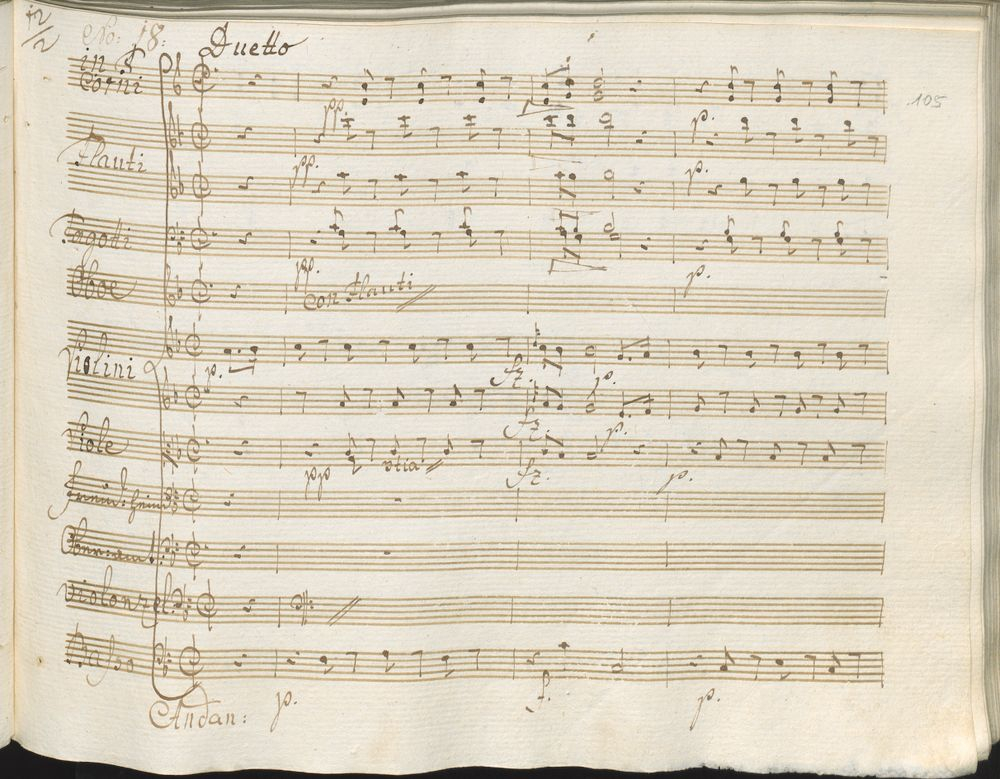 12/2
No: 18: Duetto
Corni
105
pp. p.
Flauti
pp. p.
Fagotti
pp. p.
Oboe
Con Flauti
Violini
p. fz. p.
fz. p.
Viole
pp fz. p.
Violonzel:
Basso
p. f. p.
Andan: